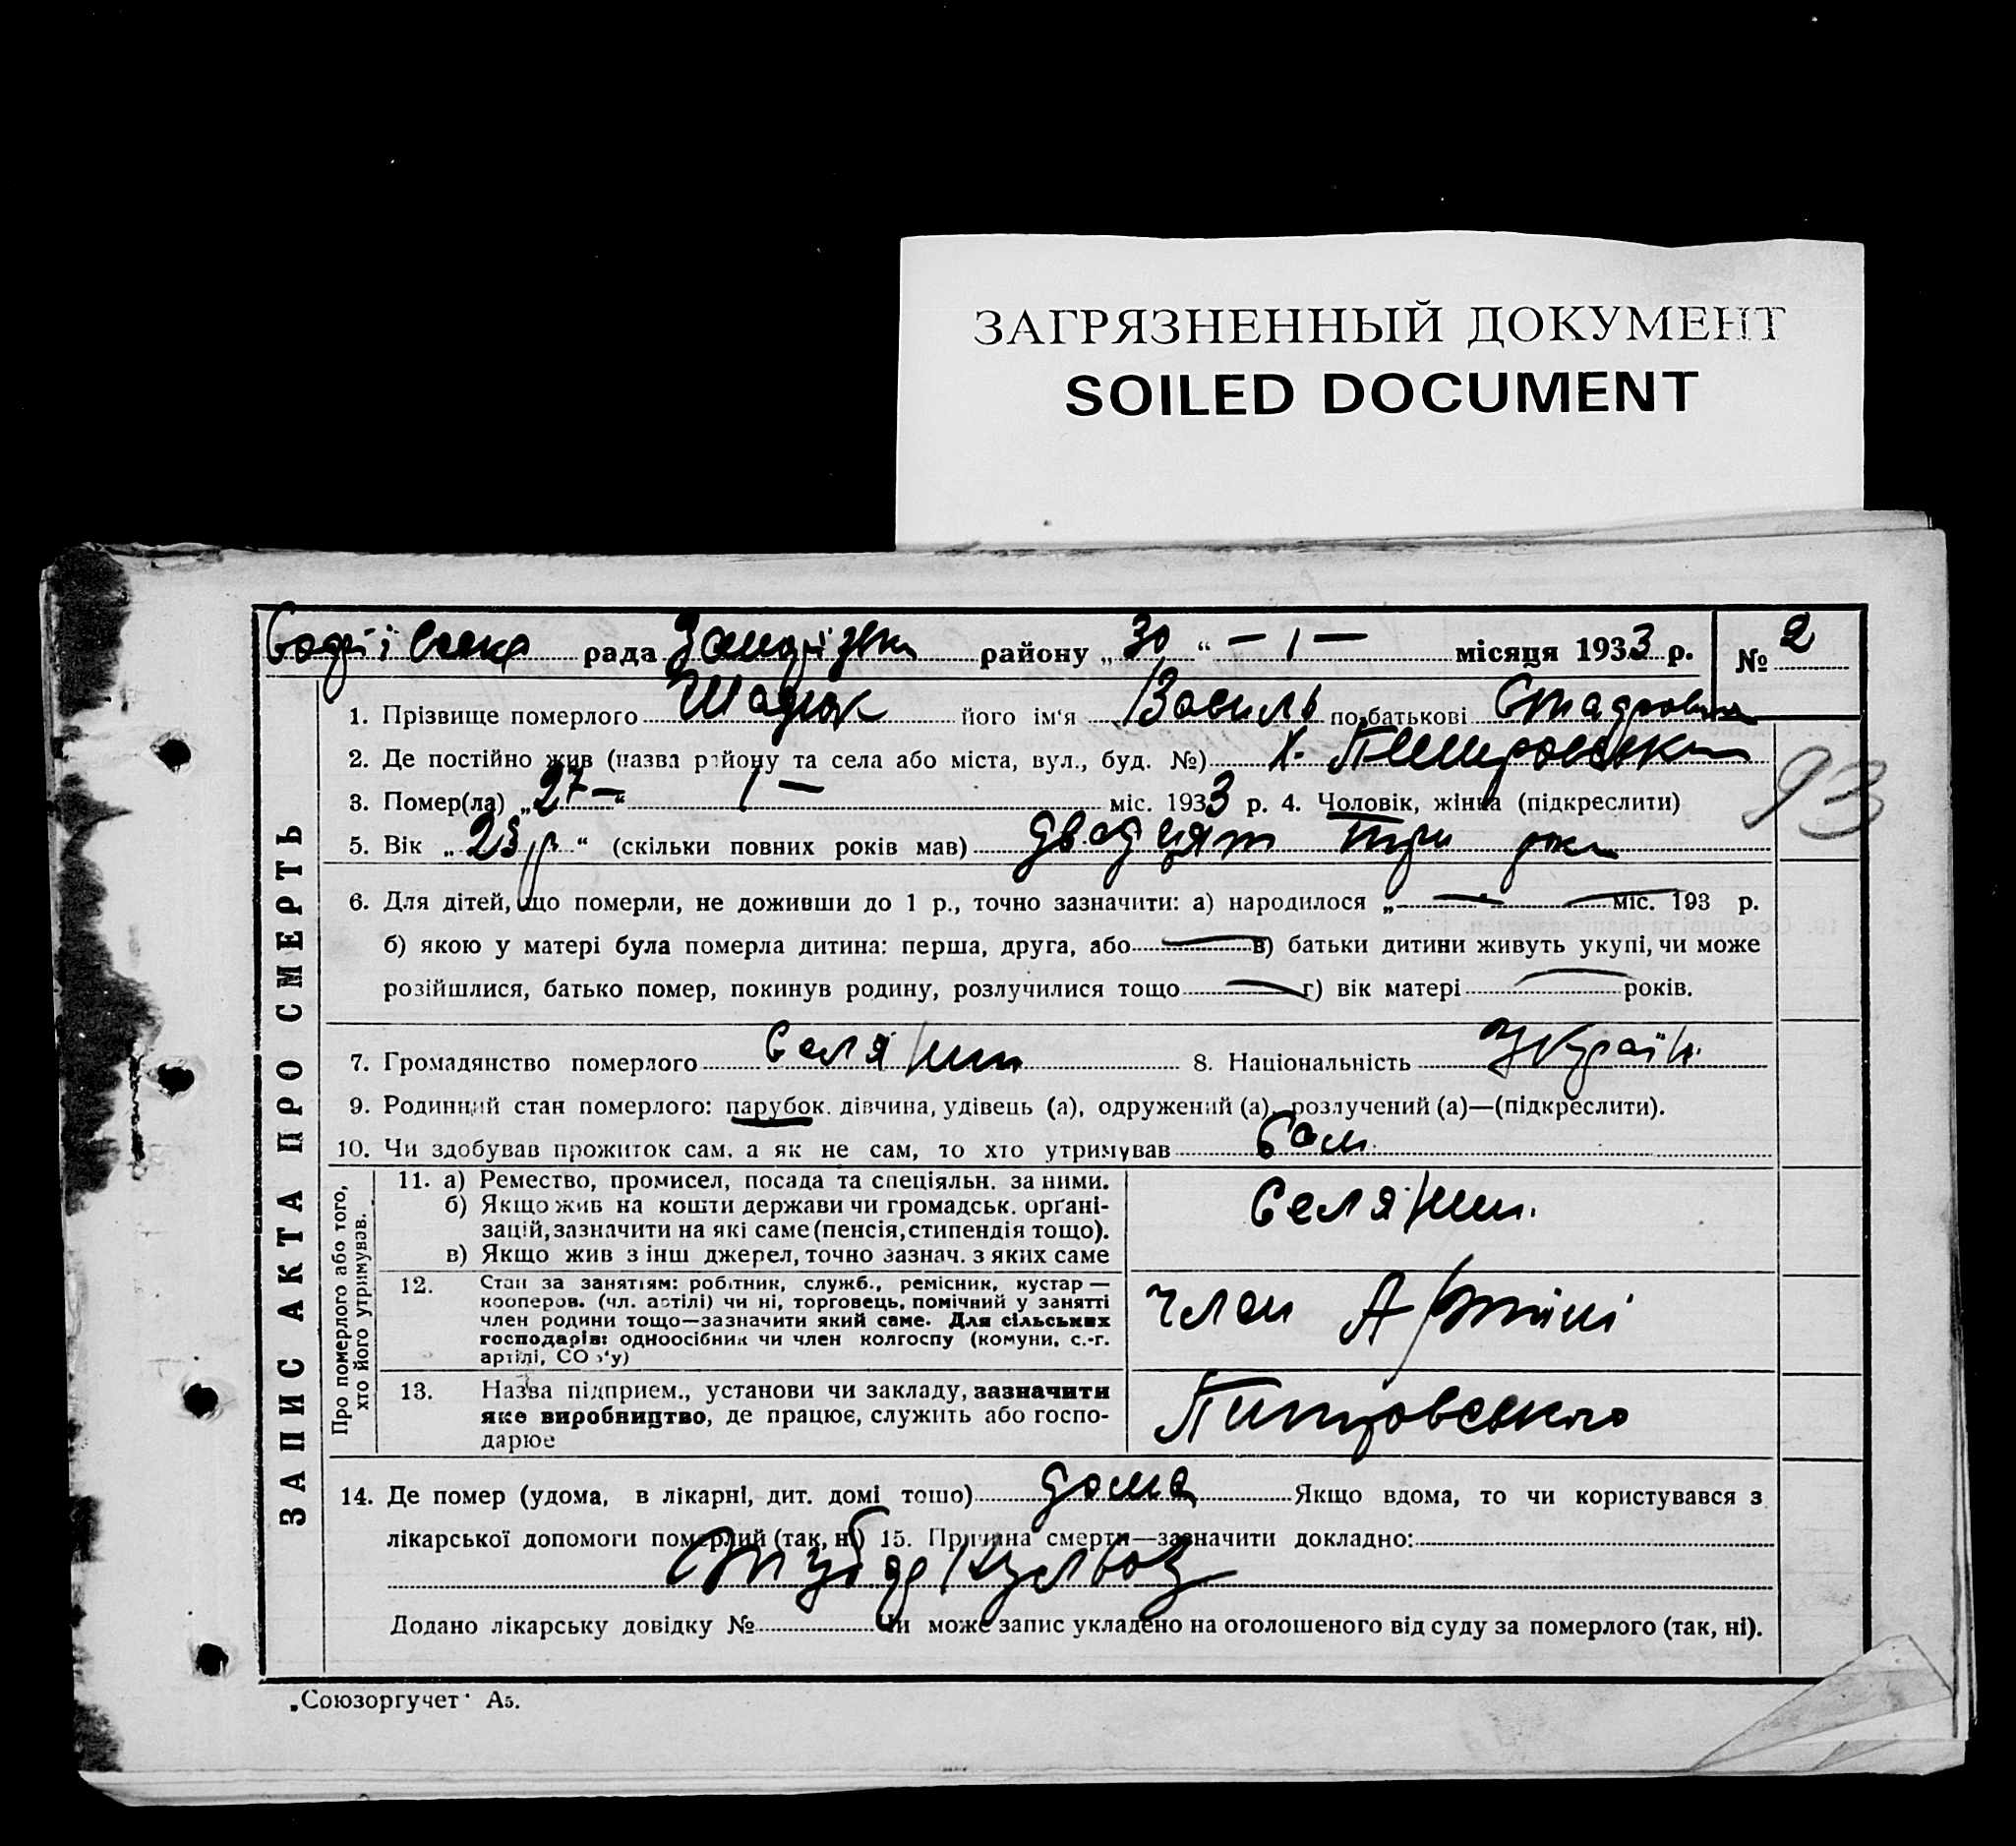 ЗАГРЯЗНЕННЫЙ ДОКУМЕНТ
SOILED DOCUMENT
рада району „30“ — 1 — місяця 1933 р. № 2
ЗАПИС АКТА ПРО СМЕРТЬ
1. Прізвище померлого його ім'я Василь по батькові
2. Де постійно жив (назва району та села або міста, вул., буд. №) х.
93
3. Помер(ла) „27 —“ 1 — міс. 1933 р. 4. Чоловік, жінка (підкреслити)
5. Вік „23 р.“ (скільки повних років мав) двадцят три роки
6. Для дітей, що померли, не доживши до 1 р., точно зазначити: а) народилося „—“ — міс. 193 р.
б) якою у матері була померла дитина: перша, друга, або — в) батьки дитини живуть укупі, чи може
розійшлися, батько помер, покинув родину, розлучилися тощо — г) вік матері — років.
7. Громадянство померлого Селянин 8. Національність Україн.
9. Родинний стан померлого: парубок. дівчина, удівець (а), одружений (а), розлучений (а)—(підкреслити).
10. Чи здобував прожиток сам, а як не сам, то хто утримував Сам.
Про померлого або того,
хто його утримував.
11. а) Ремество, промисел, посада та спеціяльн. за ними.
б) Якщо жив на кошти держави чи громадськ. орґані-
зацій, зазначити на які саме (пенсія, стипендія тощо).
в) Якщо жив з інш джерел, точно зазнач. з яких саме
Селянин.
12. Стан за заняттям: робітник, служб., ремісник, кустар —
кооперов. (чл. артілі) чи ні, торговець, помічний у занятті
член родини тощо—зазначити який саме. Для сільських
господарів: одноосібник чи член колгоспу (комуни, с.-г.
артілі, СО з'у)
член Артілі
13. Назва підприєм., установи чи закладу, зазначити
яке виробництво, де працює, служить або госпо-
дарює
Питровського
14. Де помер (удома, в лікарні, дит. домі тощо) дома Якщо вдома, то чи користувався з
лікарської допомоги померлий (так, ні) 15. Причина смерти—зазначити докладно:
туберкульоз
Додано лікарську довідку № Чи може запис укладено на оголошеного від суду за померлого (так, ні).
„Союзоргучет" А5.